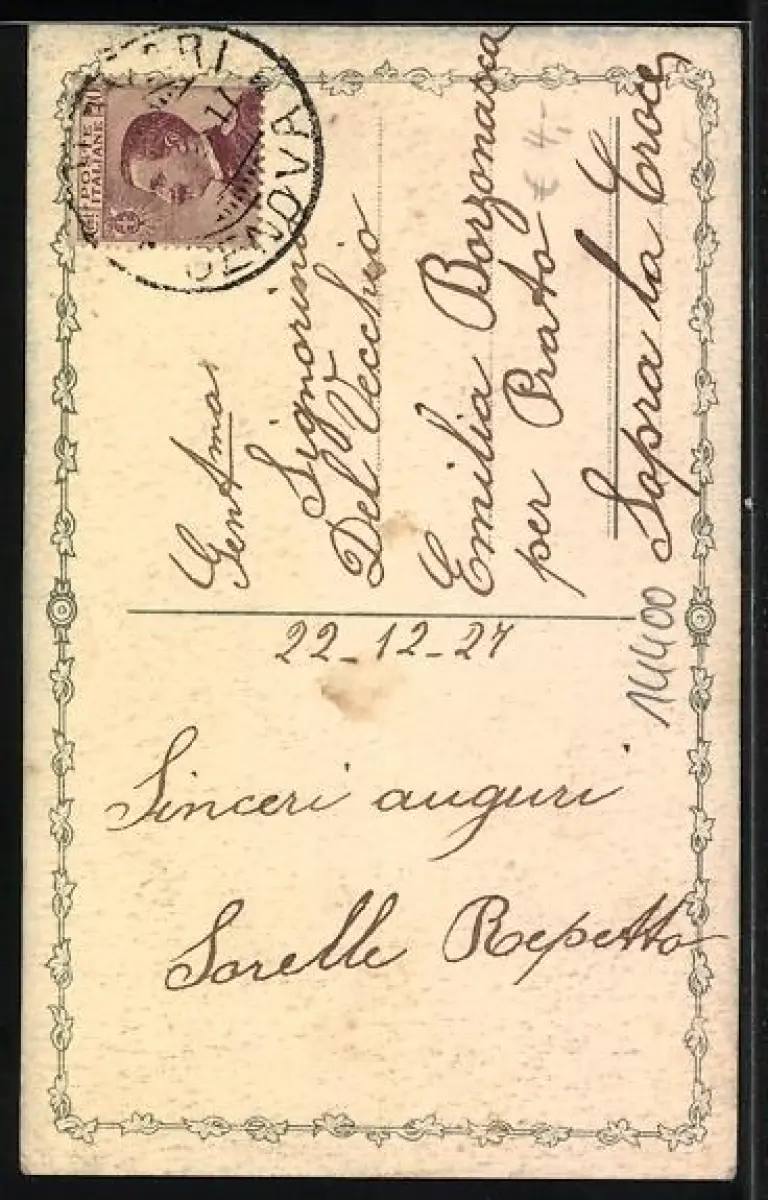 POSTE ITALIANE
GENOVA
Gent.ma
Signorina
Del Vecchio
Emilia Borzonasca
per Prato
Sopra la Croce
€ 4,-
14400
22-12-27
Sinceri auguri
Sorelle Repetto